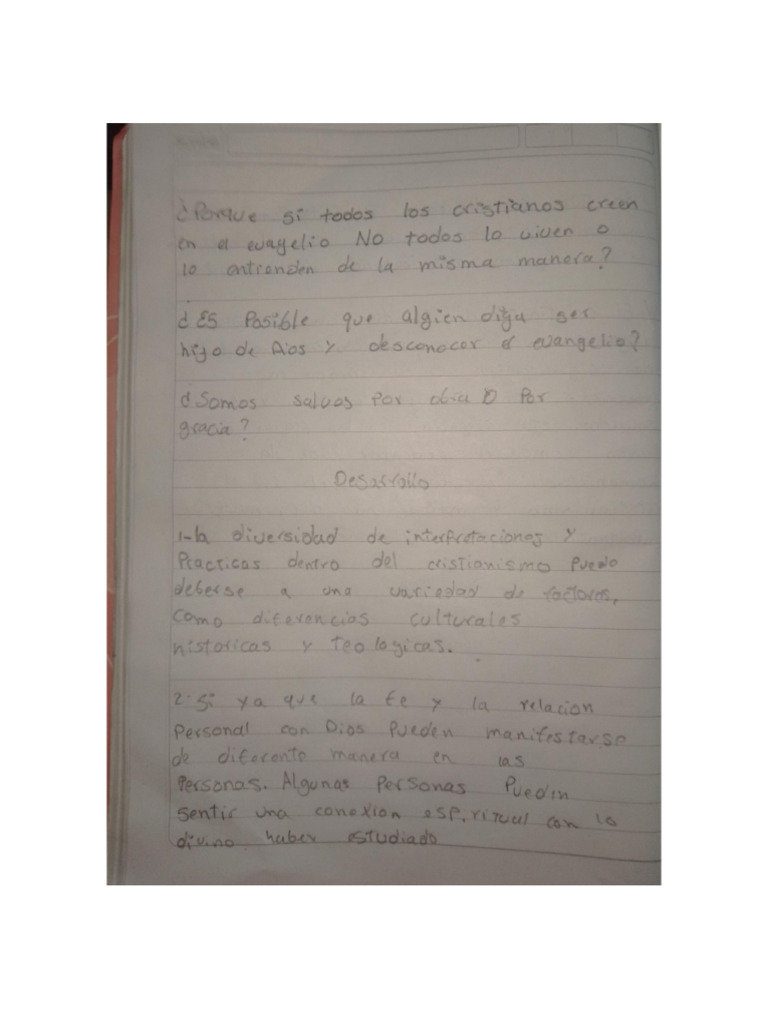 ¿Porque si todos los cristianos creen
en el evagelio No todos lo viven o
lo entienden de la misma manera?
¿Es Posible que algien diga ser
hijo de Dios y desconocer el evangelio?
¿Somos salvos Por obra o Por
gracia?
Desarrollo
1-la diversidad de interpretaciones y
Practicas dentro del cristianismo Puede
deberse a una variedad de factores,
como diferencias culturales
historicas y Teologicas.
2. Si ya que la fe y la relacion
Personal con Dios Pueden manifestarse
de diferente manera en las
Personas. Algunas Personas Pueden
Sentir una conexion espiritual con lo
divino haber estudiado